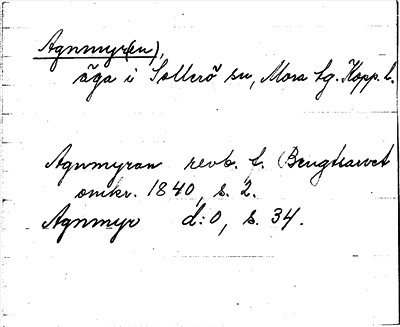 Agnmyr(en),
äga i Sollerö sn, Mora tg. Kopp. l.
Agnmyran revb. f. Bengtsarvet
omkr. 1840, s. 2.
Agnmyr d:o, s. 34.